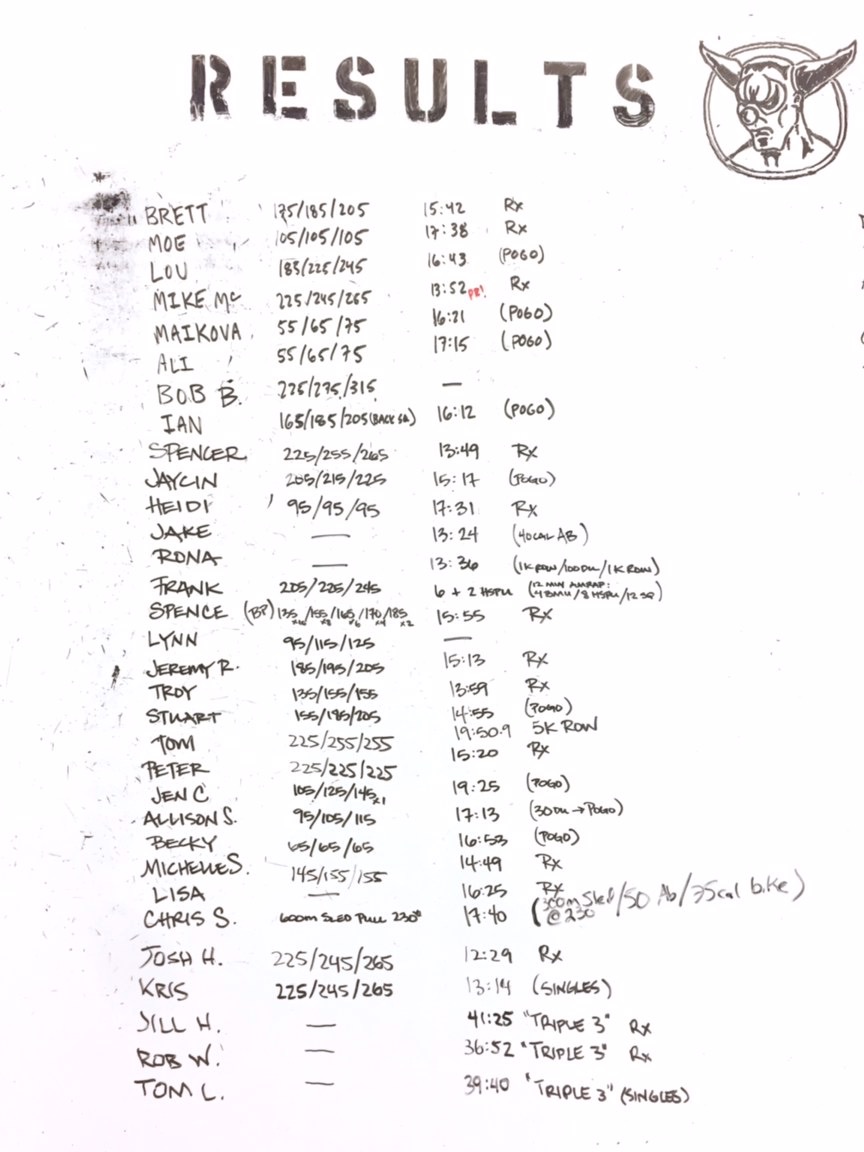 RESULTS
BRETT 135/185/205 15:42 Rx
MOE 105/105/105 17:38 Rx
LOU 185/225/245 16:43 (POGO)
MIKE Mc 225/245/265 13:52 PR! Rx
MAIKOVA 55/65/75 16:21 (POGO)
ALI 55/65/75 17:15 (POGO)
BOB B. 225/275/315 —
IAN 165/185/205 (BACK SQ) 16:12 (POGO)
SPENCER 225/255/265 13:49 Rx
JAYCIN 205/215/225 15:17 (POGO)
HEIDI 95/95/95 17:31 Rx
JAKE — 13:24 (40CAL AB)
RONA — 13:36 (1K ROW/100DU/1K ROW)
FRANK 205/225/245 6 + 2 HSPU (12 MIN AMRAP: /8 HSPU/12
SPENCE (BP) 135 /155 /165 /170 /185 x2 15:55 Rx
LYNN 95/115/125 —
JEREMY R. 185/195/205 15:13 Rx
TROY 135/155/155 13:59 Rx
STUART 155/185/205 14:55 (POGO)
TOM 225/255/255 19:50.9 5K ROW
PETER 225/225/225 15:20 Rx
JEN C 105/125/145x1 19:25 (POGO)
ALLISON S. 95/105/115 17:13 (30DU→POGO)
BECKY 65/65/65 16:53 (POGO)
MICHELLE S. 145/155/155 14:49 Rx
LISA — 16:25 Rx
CHRIS S. 600m SLED PULL 230# 17:40 (300m Sled @ 230/50 Ab/75cal bike)
JOSH H. 225/245/265 12:29 Rx
KRIS 225/245/265 13:14 (SINGLES)
JILL H. — 41:25 "TRIPLE 3" Rx
ROB W. — 36:52 "TRIPLE 3" Rx
TOM L. — 39:40 "TRIPLE 3" (SINGLES)